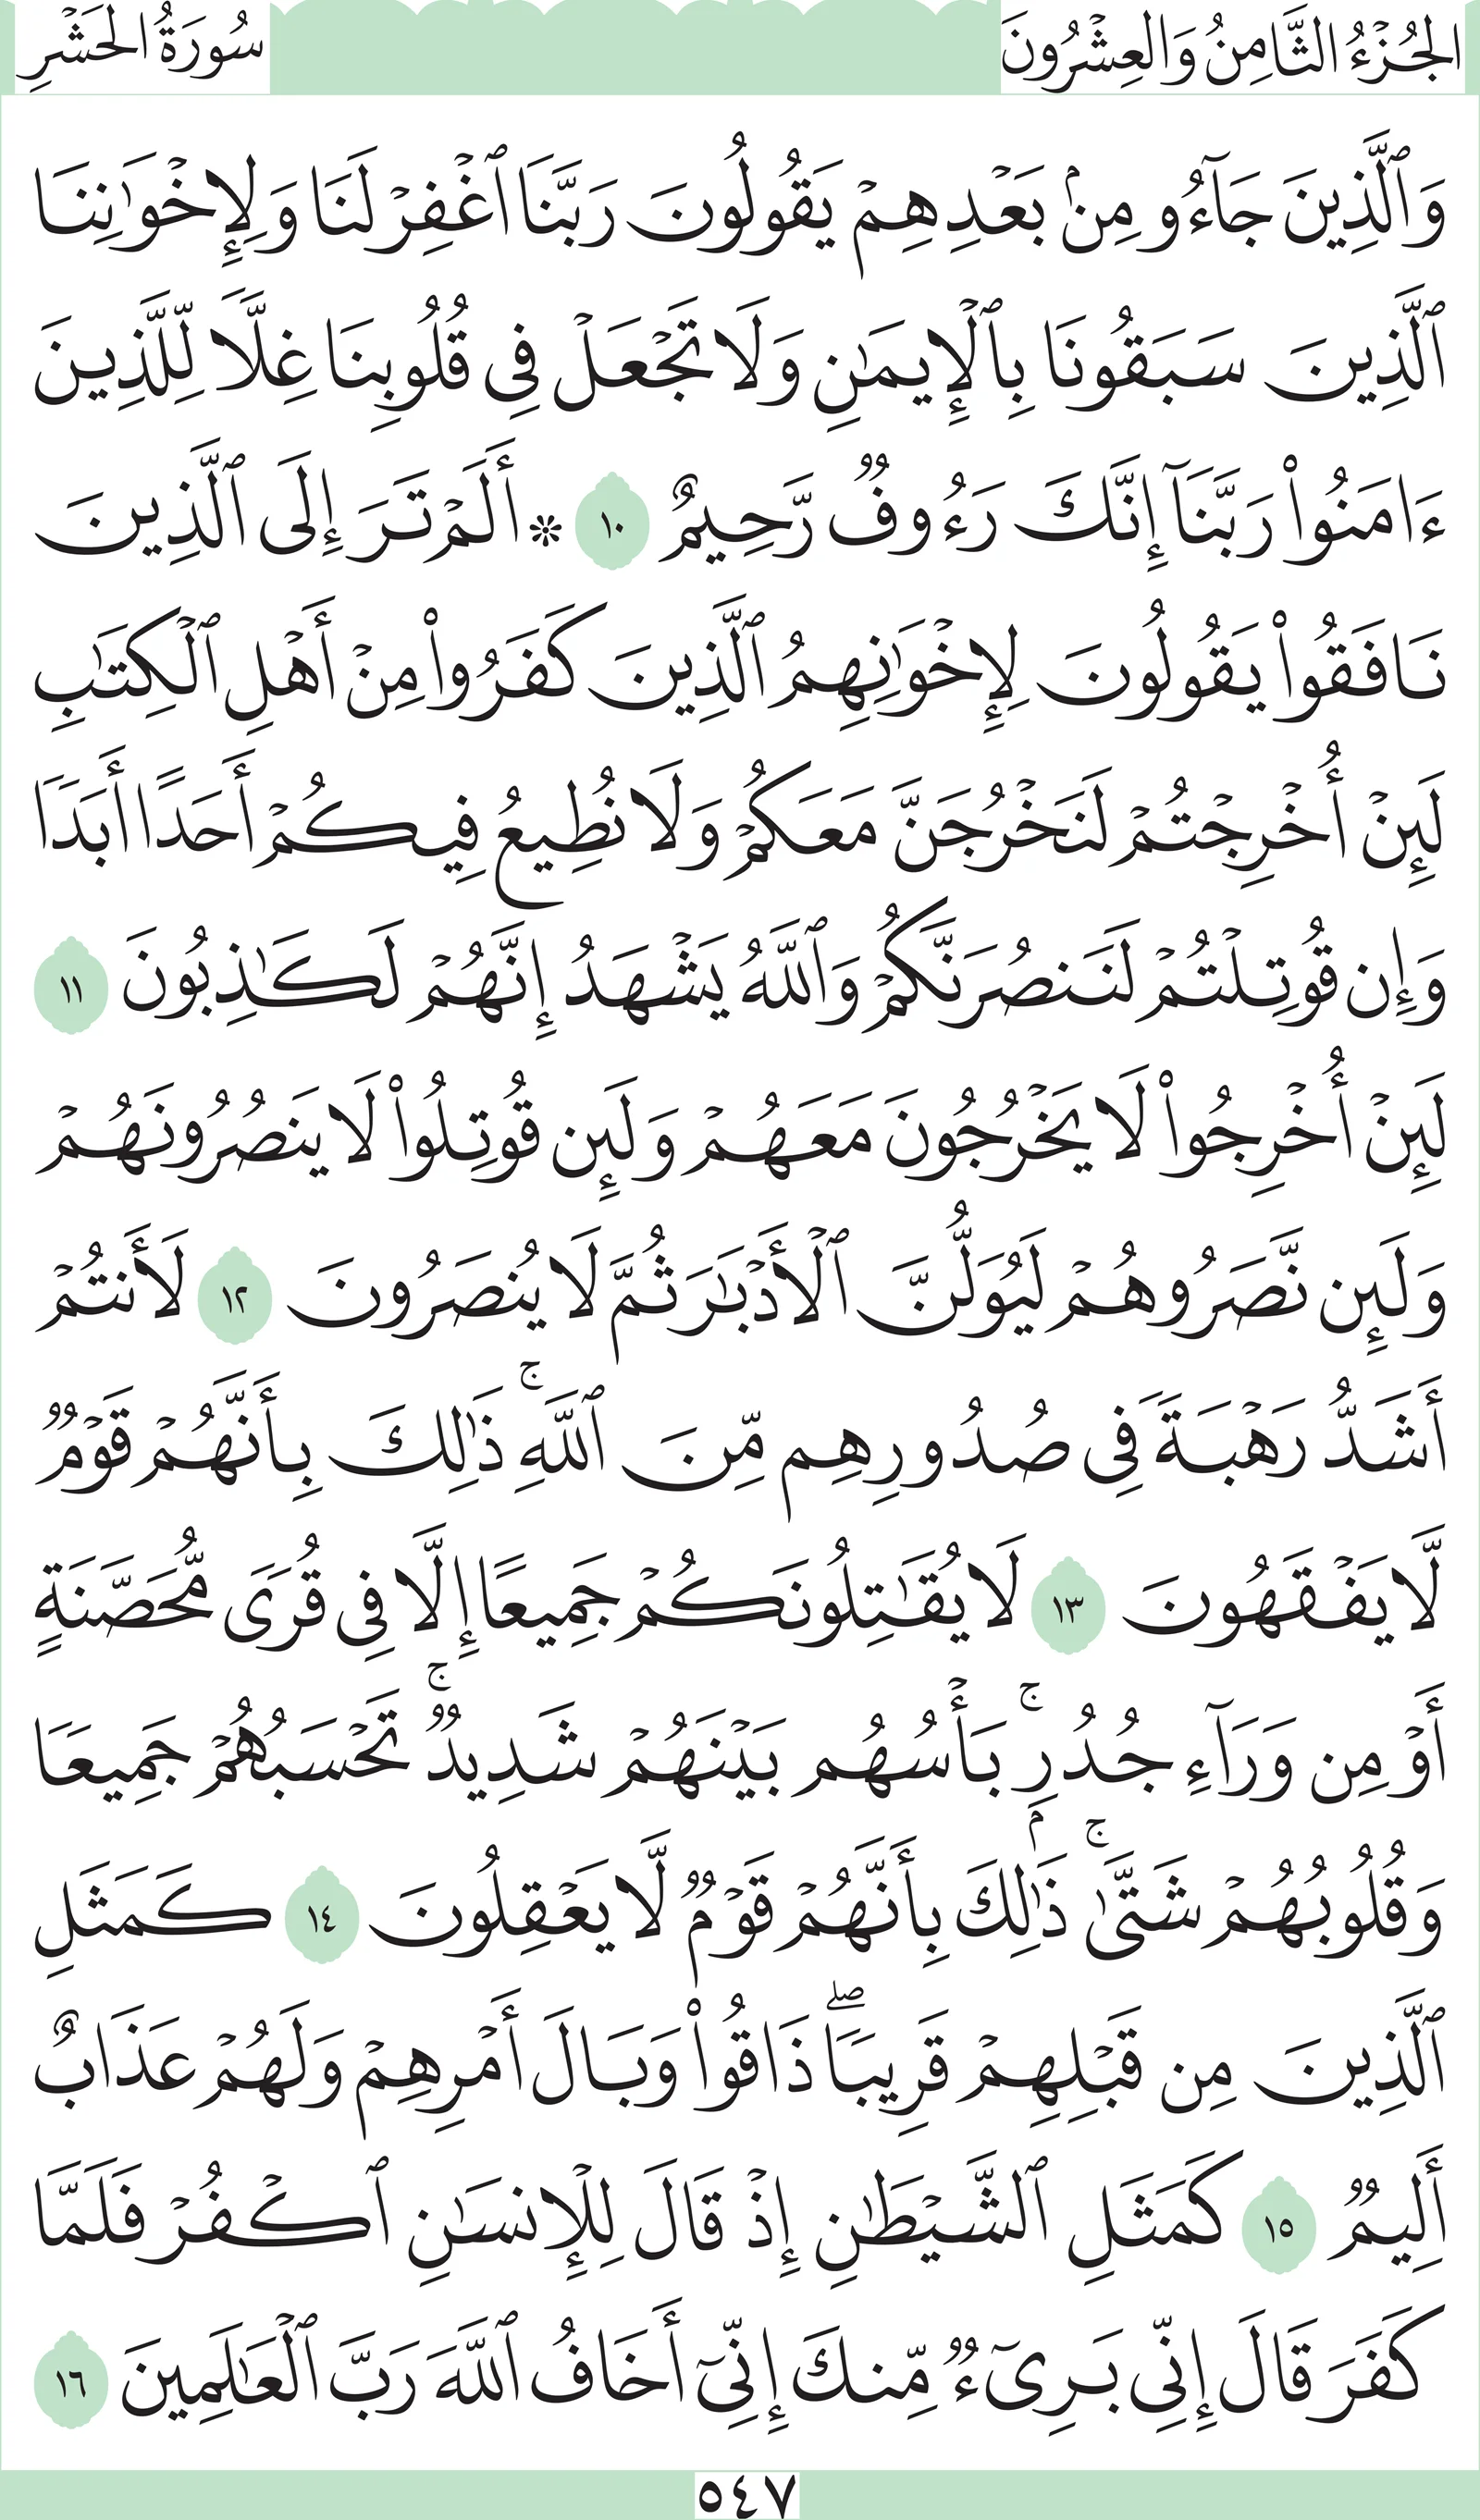 الجُزْءُ الثَّامِنُ وَالعِشْرُونَ
سُورَةُ الحَشْرِ
وَٱلَّذِينَ جَآءُو مِنۢ بَعْدِهِمْ يَقُولُونَ رَبَّنَا ٱغْفِرْ لَنَا وَلِإِخْوَٰنِنَا
ٱلَّذِينَ سَبَقُونَا بِٱلْإِيمَٰنِ وَلَا تَجْعَلْ فِى قُلُوبِنَا غِلًّا لِّلَّذِينَ
ءَامَنُوا۟ رَبَّنَآ إِنَّكَ رَءُوفٌ رَّحِيمٌ ١٠ ۞ أَلَمْ تَرَ إِلَى ٱلَّذِينَ
نَافَقُوا۟ يَقُولُونَ لِإِخْوَٰنِهِمُ ٱلَّذِينَ كَفَرُوا۟ مِنْ أَهْلِ ٱلْكِتَٰبِ
لَئِنْ أُخْرِجْتُمْ لَنَخْرُجَنَّ مَعَكُمْ وَلَا نُطِيعُ فِيكُمْ أَحَدًا أَبَدًا
وَإِن قُوتِلْتُمْ لَنَنصُرَنَّكُمْ وَٱللَّهُ يَشْهَدُ إِنَّهُمْ لَكَٰذِبُونَ ١١
لَئِنْ أُخْرِجُوا۟ لَا يَخْرُجُونَ مَعَهُمْ وَلَئِن قُوتِلُوا۟ لَا يَنصُرُونَهُمْ
وَلَئِن نَّصَرُوهُمْ لَيُوَلُّنَّ ٱلْأَدْبَٰرَ ثُمَّ لَا يُنصَرُونَ ١٢ لَأَنتُمْ
أَشَدُّ رَهْبَةً فِى صُدُورِهِم مِّنَ ٱللَّهِ ۚ ذَٰلِكَ بِأَنَّهُمْ قَوْمٌ
لَّا يَفْقَهُونَ ١٣ لَا يُقَٰتِلُونَكُمْ جَمِيعًا إِلَّا فِى قُرًى مُّحَصَّنَةٍ
أَوْ مِن وَرَآءِ جُدُرٍۭ ۚ بَأْسُهُم بَيْنَهُمْ شَدِيدٌ ۚ تَحْسَبُهُمْ جَمِيعًا
وَقُلُوبُهُمْ شَتَّىٰ ۚ ذَٰلِكَ بِأَنَّهُمْ قَوْمٌ لَّا يَعْقِلُونَ ١٤ كَمَثَلِ
ٱلَّذِينَ مِن قَبْلِهِمْ قَرِيبًا ۖ ذَاقُوا۟ وَبَالَ أَمْرِهِمْ وَلَهُمْ عَذَابٌ
أَلِيمٌ ١٥ كَمَثَلِ ٱلشَّيْطَٰنِ إِذْ قَالَ لِلْإِنسَٰنِ ٱكْفُرْ فَلَمَّا
كَفَرَ قَالَ إِنِّى بَرِىٓءٌ مِّنكَ إِنِّىٓ أَخَافُ ٱللَّهَ رَبَّ ٱلْعَٰلَمِينَ ١٦
٥٤٧